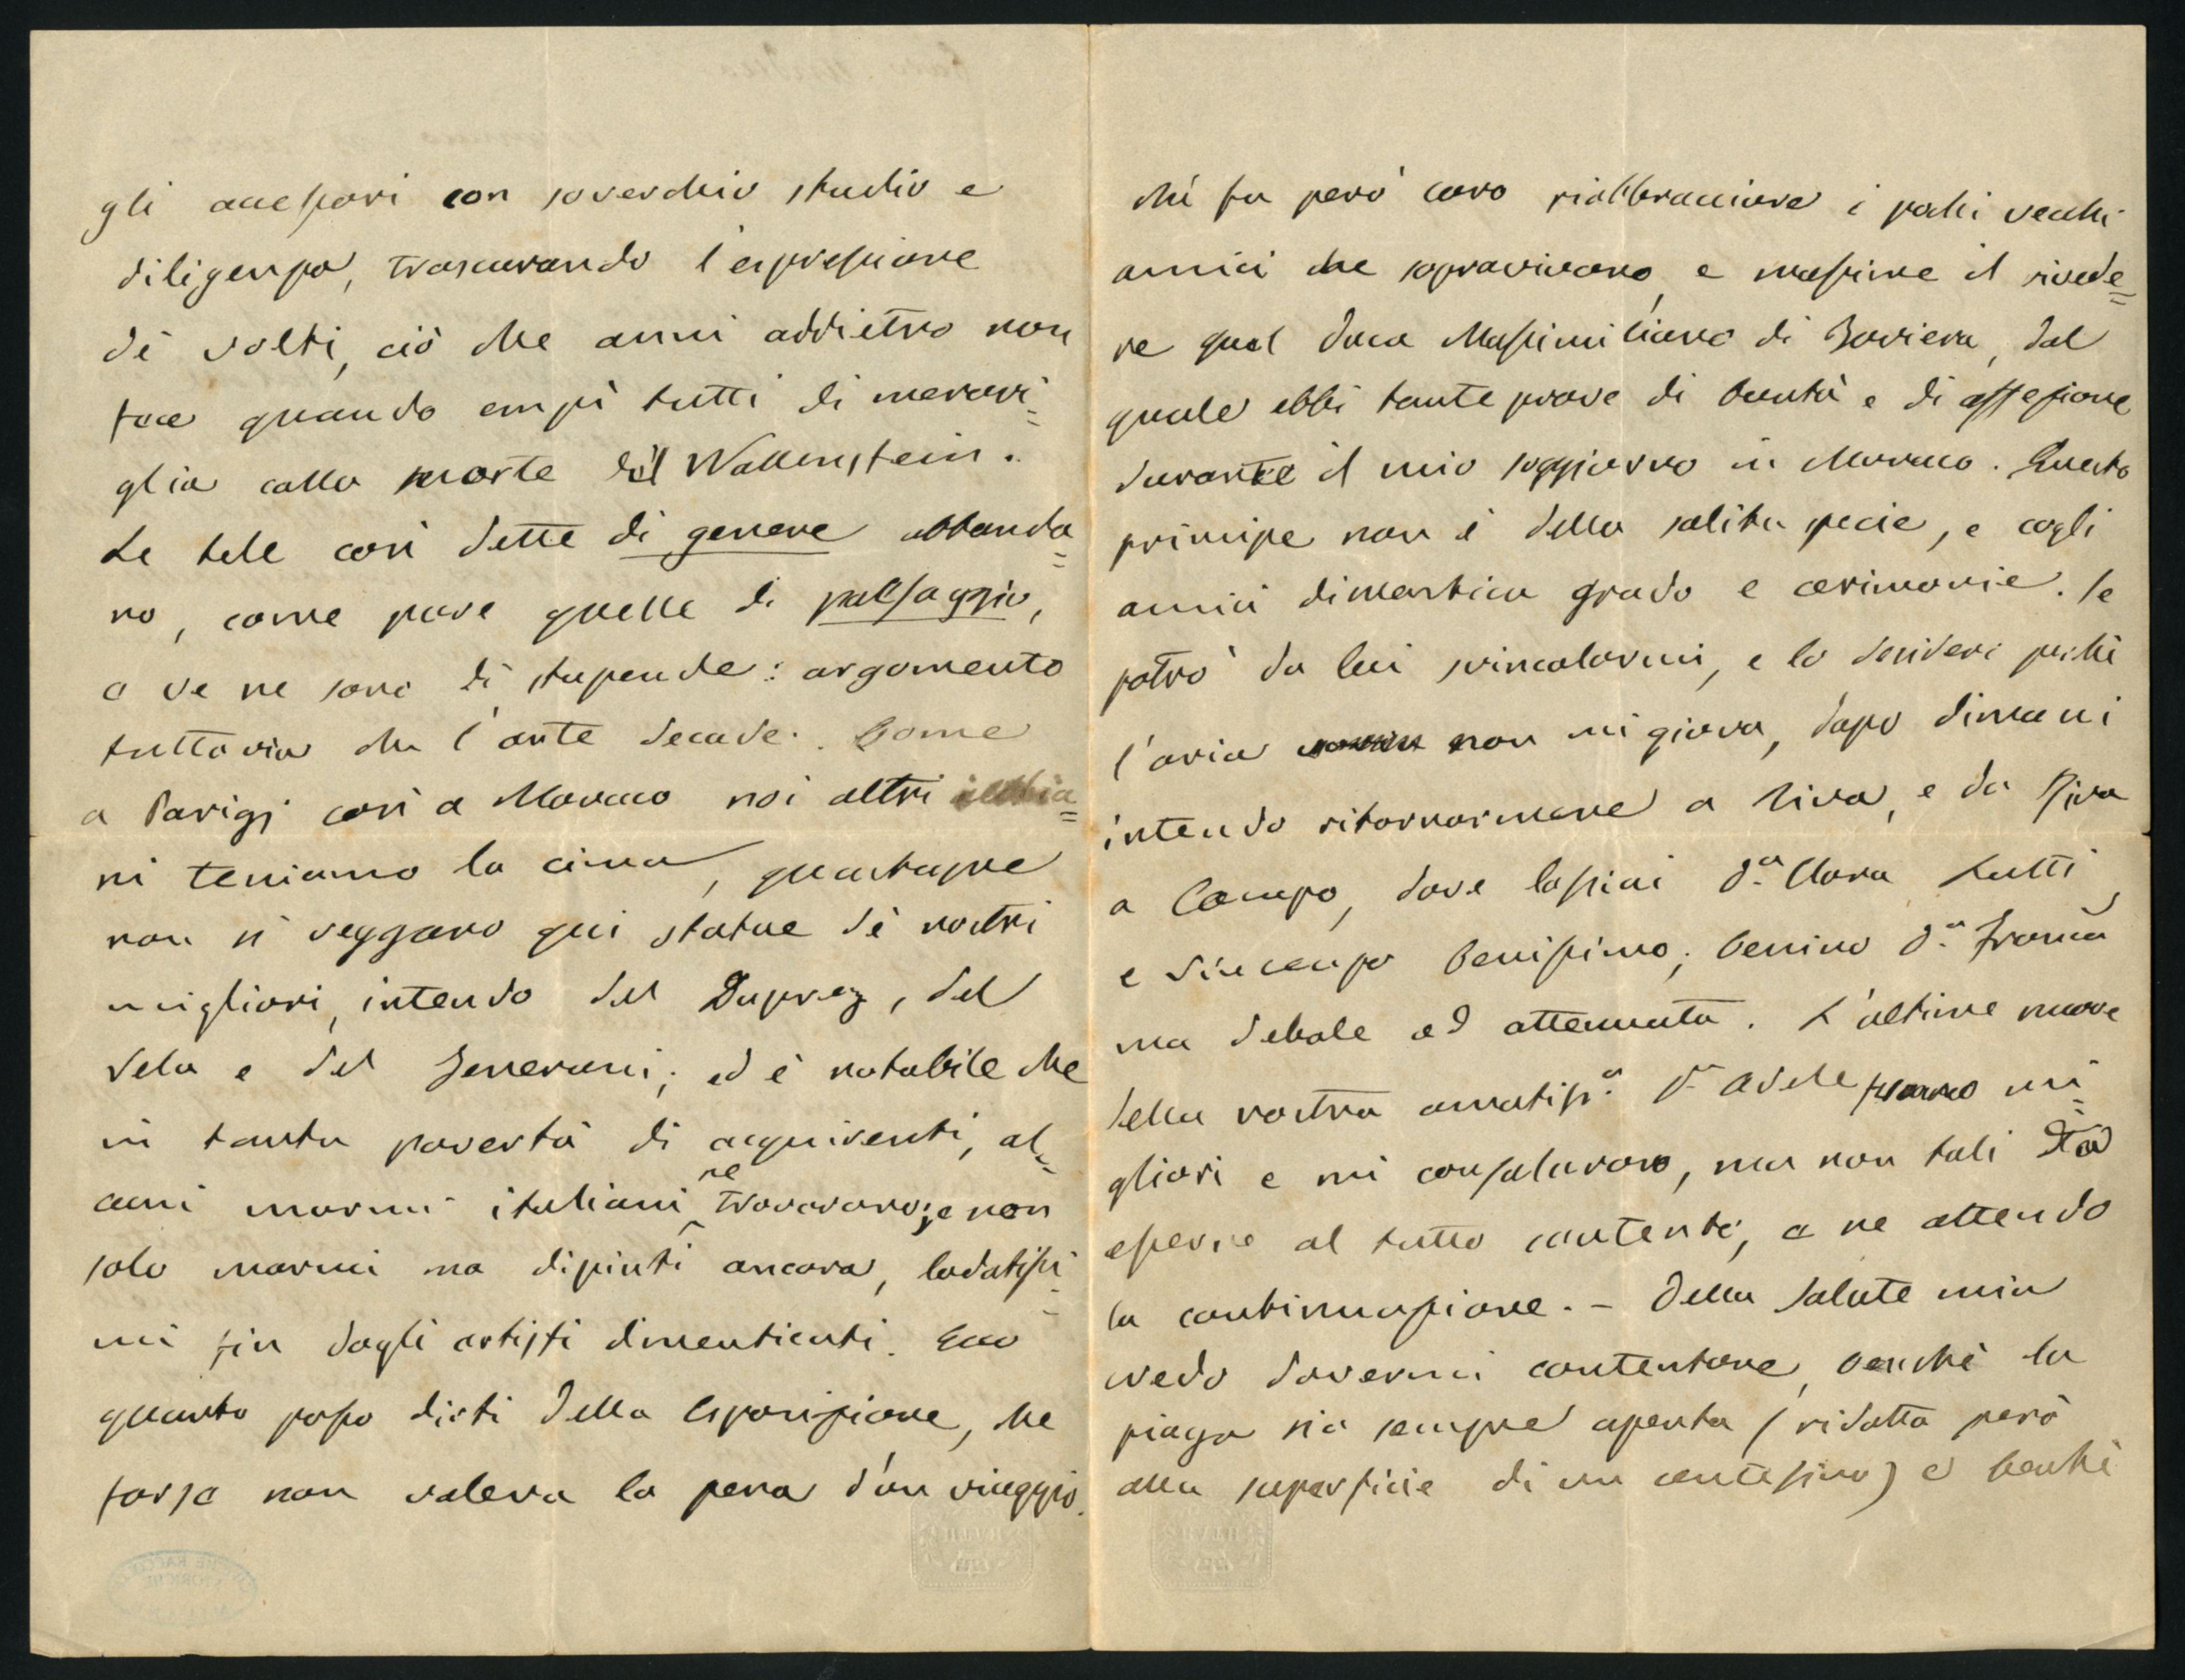 gli accessori con soverchio studio e
diligenza, trascurando l'espressione
dè volti, ciò che anni addietro non
fece quando empì tutti di meravi=
glia colla morte del Wallenstein.
Le tele così dette di genere abbonda=
no, come pure quelle di paesaggio,
e ve ne sono di stupende: argomento
tuttavia che l'arte decade. Come
a Parigi così a Monaco noi altri italia=
ni teniamo la cima, quantunque
non si veggano qui statue dè nostri
migliori, intendo del Duprez, del
Vela e del Tenerani; ed è notabile che
in tanta povertà di acquirenti, al=
cuni marmi italiani ne trovarono; e non
solo marmi ma dipinti ancora, lodatissi=
mi fin dagli artisti dimenticati. Ecco
quanto posso dirti della Esposizione, che
forse non valeva la pena d'un viaggio.
Mi fu però caro riabbracciare i pochi vecchi
amici che sopravivono, e massime il rivede=
re quel Duca Massimiliano di Baviera, dal
quale ebbi tante prove di bontà e di affezione
durante il mio soggiorno in Monaco. Questo
principe non è della solita specie, e cogli
amici dimentica grado e cerimonie. Se
potrò da lui svincolarmi, e lo desidero perchè
l'aria non mi giova, dopo dimani
intendo ritornarmene a Riva, e da Riva
a Campo, dove lasciai D.a Clara Lutti
e Vincenzo benissimo; benino D.a
ma debole ed attenuata. L'ultime nuove
della vostra amatiss.a D.a Adele furono mi=
gliori e mi consolarono, ma non tali da
esserne al tutto contenti, e ne attendo
la continuazione. - Della salute mia
credo dovermi contentare, benchè la
piaga sia sempre aperta (ridotta però
alla superficie di un centesimo) e benchè